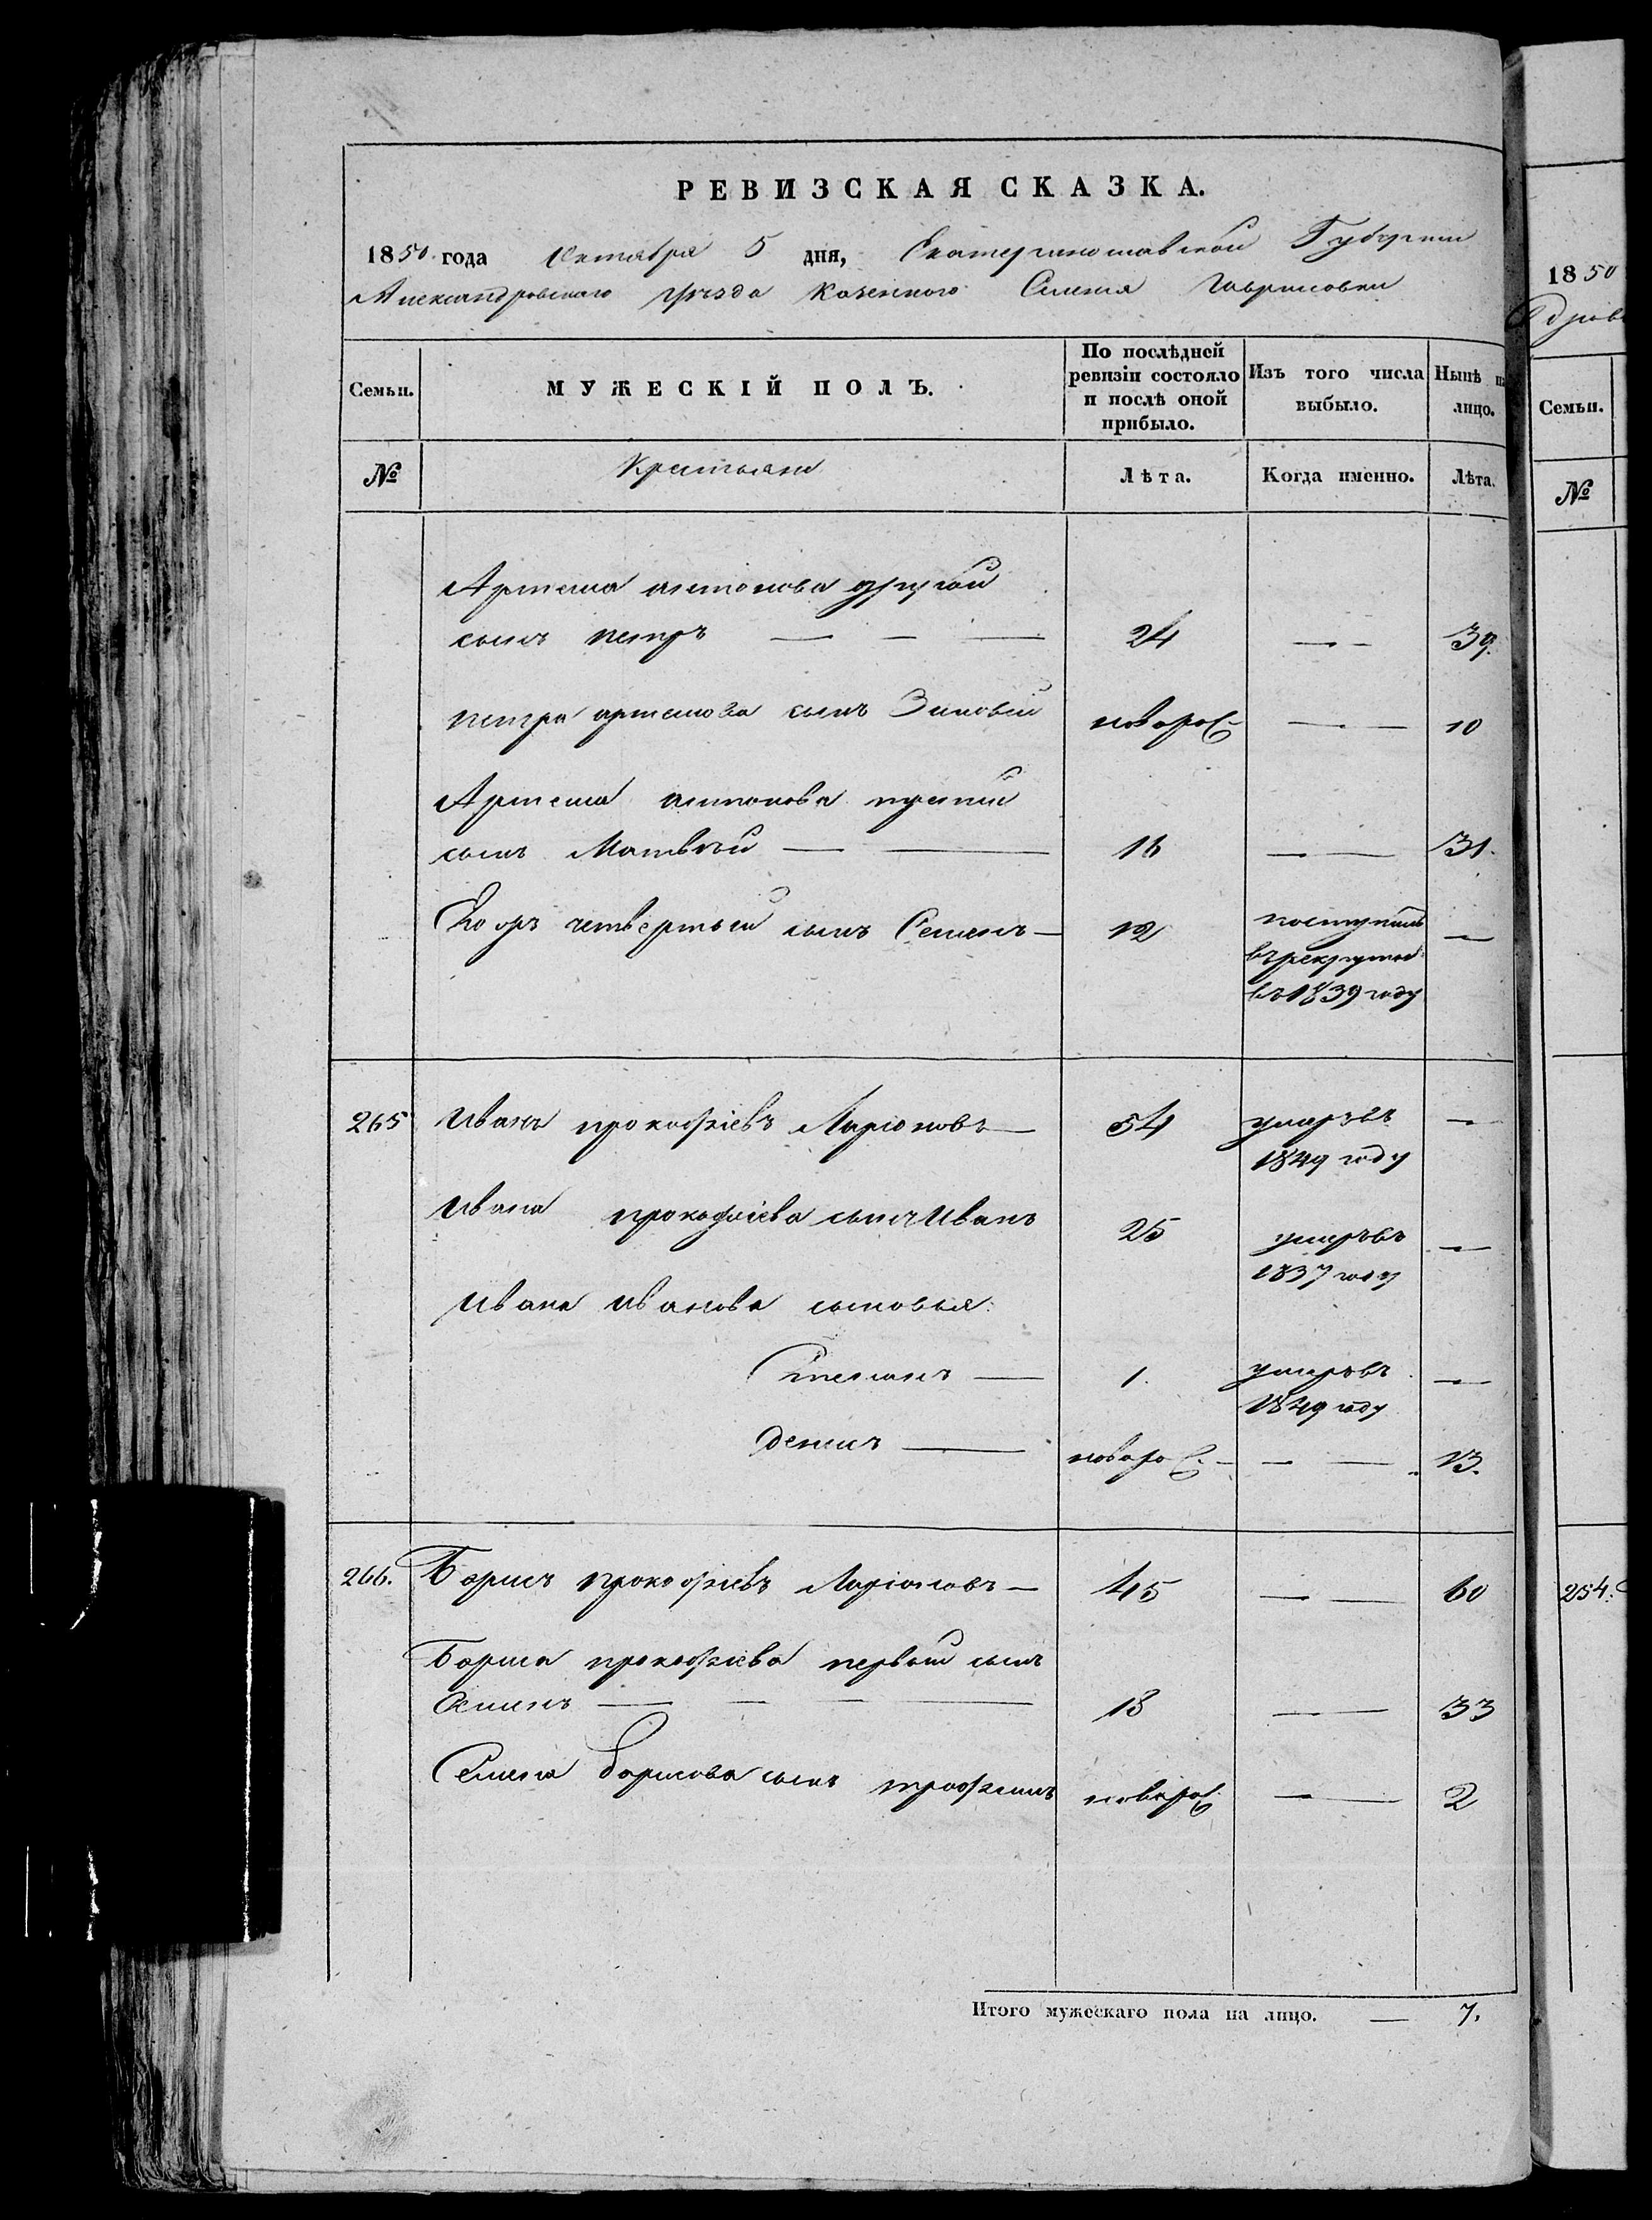 РЕВИЗСКАЯ СКАЗКА.
1850 года Октября 5 дня, Екатеринославской Губернии
Александровскаго уѣзда Казеннаго Селенія Гаврисовки
Семьи. МУЖЕСКІЙ ПОЛЪ. По послѣдней ревизіи состояло и послѣ оной прибыло. Изъ того числа выбыло. Нынѣ на лицо.
№ Крестьяне Лѣта. Когда именно. Лѣта.
Артема антонова другой
сынъ петръ — — — 24 — 39.
петра артемова сынъ Зиновій новорож — 10
Артема антонова третій
сынъ Матвѣй — — 16 — 31.
четвертый сынъ Семенъ — 12 поступилъ —
въ рекруты
въ 1839 году
265 Иванъ прокофіевъ Ларіоновъ — 54 умеръ въ —
1849 году
Ивана прокофіева сынъ Иванъ 25 умеръ въ —
1837 году
Ивана Иванова сыновья:
Степанъ — 1. умеръ въ —
1849 году
Демидъ — новорож — — 13.
266. Борисъ Прокофіевъ Ларіоновъ — 45 — 60
Бориса прокофіева первый сынъ
Семенъ — — — 18 — 33
Семена Борисова сынъ трофимъ новорож — 2
Итого мужескаго пола на лицо. — 7.
1850
Семьи.
№
254.